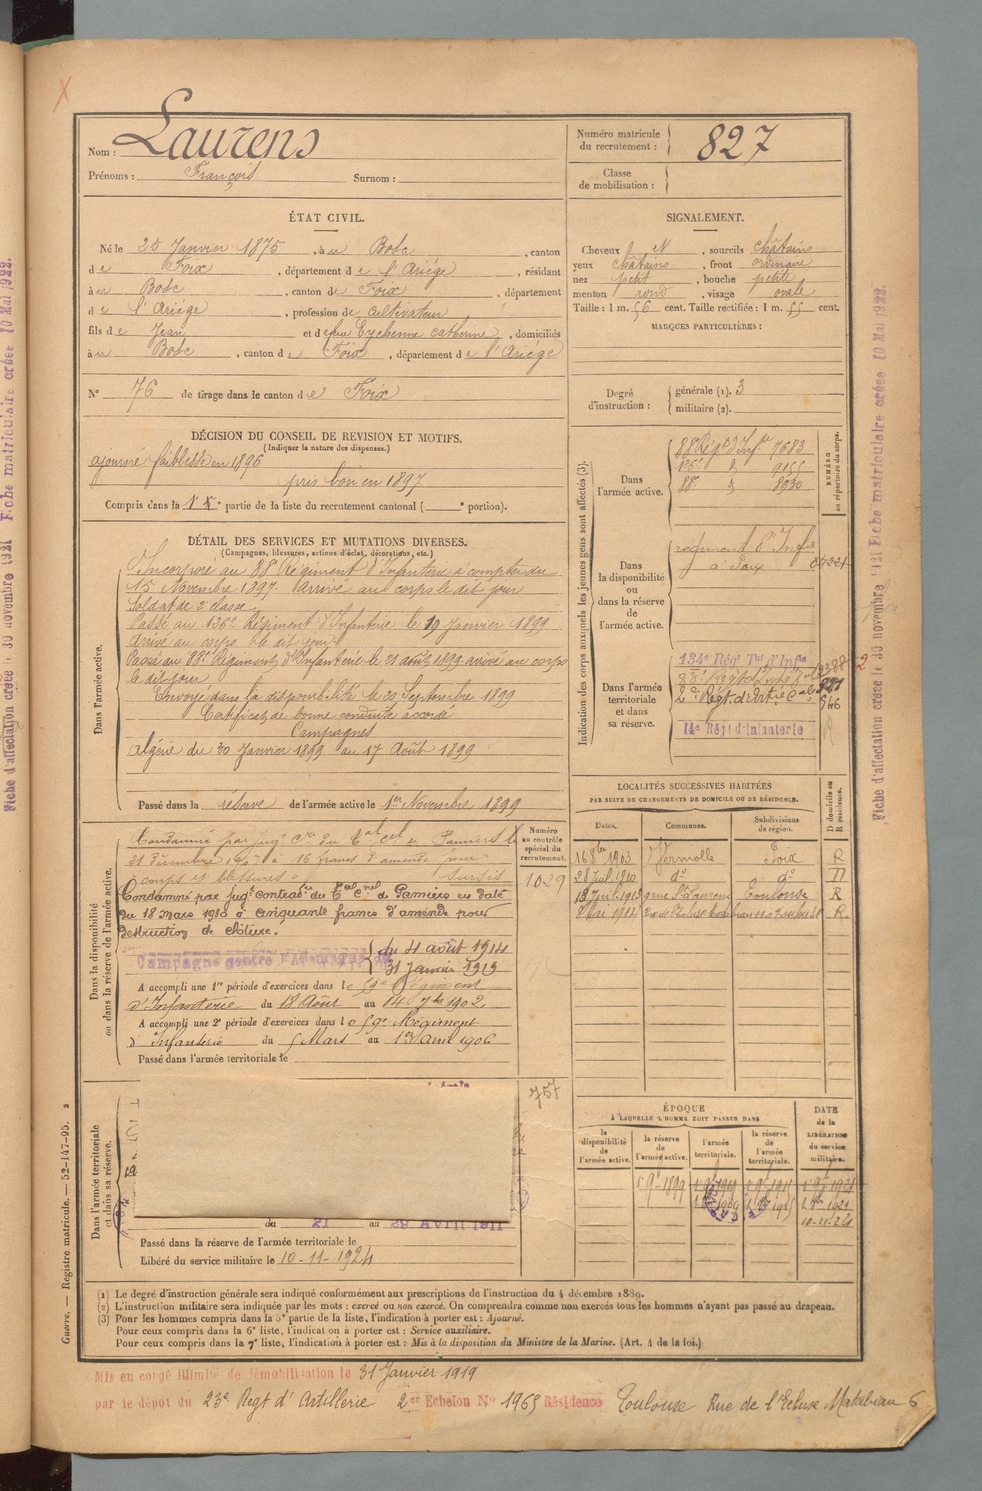 Nom : Laurens
Prénoms : François Surnom :
Numéro matricule du recrutement : 827
Classe de mobilisation :
ÉTAT CIVIL.
Né le 25 Janvier 1875, à u Bosc, canton
d e Foix, département d e l'Ariége, résidant
à u Bosc, canton de Foix, département
d e l'Ariége, profession de cultivateur
fils d e Jean et d e feue Eychenne Catherine, domiciliés
à u Bosc, canton d e Foix, département d e l'Ariége
N° 76 de tirage dans le canton d e Foix
SIGNALEMENT.
Cheveux et, sourcils châtains
yeux châtains, front ordinaire
nez petit, bouche petite
menton rond, visage ovale
Taille : 1 m. 56 cent. Taille rectifiée : 1 m. 55 cent.
MARQUES PARTICULIÈRES :
Degré d'instruction :
générale (1). 3
militaire (2).
DÉCISION DU CONSEIL DE REVISION ET MOTIFS.
(Indiquer la nature des dispenses.)
ajourné faiblesse en 1896
pris bon en 1897
Compris dans la 1e partie de la liste du recrutement cantonal ( e portion).
DÉTAIL DES SERVICES ET MUTATIONS DIVERSES.
(Campagnes, blessures, actions d'éclat, décorations, etc.)
Dans l'armée active.
Incorporé au 88e Régiment d'Infanterie à compter du
15 Novembre 1897. Arrivé au corps le dit jour
Soldat de 2e classe
Passé au 136e Régiment d'Infanterie le 19 Janvier 1899
Arrivé au corps le dit jour
Passé au 88e Régiment d'Infanterie le 21 août 1899 arrivé au corps
le dit jour
Envoyé dans la disponibilité le 20 Septembre 1899
Certificat de bonne conduite accordé
Campagnes
Algérie du 30 Janvier 1899 au 17 Août 1899
Passé dans la réserve de l'armée active le 1er Novembre 1899
Indication des corps auxquels les jeunes gens sont affectés (3).
NUMÉRO au répertoire du corps.
Dans l'armée active.
88e Rég d'Inf 7683
136e d 9155
88e d 8930
Dans la disponibilité ou dans la réserve de l'armée active.
régiment d'Infie
à Foix 04221
Dans l'armée territoriale et dans sa réserve.
134e Régt Tal d'Infie
2e Régt d'Artie Cale 546
14e Régt d'Infanterie
Dans la disponibilité ou dans la réserve de l'armée active.
Numéro au contrôle spécial du recrutement.
1029
Condamné par jugt Cre du tal cel de Pamiers le
à 16 francs d'amende pour
coups et blessures Sursis
Condamné par jugt contradre du Tal Cnel de Pamiers en date
du 18 mars 1910 à cinquante francs d'amende pour
destruction de clôture.
Campagne contre l'Allemagne du
du 4 août 1914
31 Janvier 1919
A accompli une 1re période d'exercices dans l e 59e Régiment
d'Infanterie du 18 Août au 14 7bre 1902
A accompli une 2e période d'exercices dans l e 59e Régiment
d'Infanterie du 5 Mars au 1er Avril 1906
Passé dans l'armée territoriale le
LOCALITÉS SUCCESSIVES HABITÉES
PAR SUITE DE CHANGEMENTS DE DOMICILE OU DE RÉSIDENCE.
Dates. Communes. Subdivisions de région. D domicile ou R résidence.
16 8bre 1902 Vernolle Foix R
28 juil. 1910 do do D
Toulouse R
8 Mai 1914 R.
Dans l'armée territoriale et dans sa réserve.
757
du 21 au 29 Avril 1911
Passé dans la réserve de l'armée territoriale le
Libéré du service militaire le 10-11-1924
ÉPOQUE
À LAQUELLE L'HOMME DOIT PASSER DANS
DATE de la LIBÉRATION du service militaire.
la disponibilité de l'armée active. la réserve de l'armée active. l'armée territoriale. la réserve de l'armée territoriale.
1 9bre 1899
10-11-24
(1) Le degré d'instruction générale sera indiqué conformément aux prescriptions de l'instruction du 4 décembre 1889.
(2) L'instruction militaire sera indiquée par les mots : exercé ou non exercé. On comprendra comme non exercés tous les hommes n'ayant pas passé au drapeau.
(3) Pour les hommes compris dans la 5e partie de la liste, l'indication à porter est : Ajourné.
Pour ceux compris dans la 6e liste, l'indication à porter est : Service auxiliaire.
Pour ceux compris dans la 7e liste, l'indication à porter est : Mis à la disposition du Ministre de la Marine. (Art. 4 de la loi.)
Mis en congé illimité de démobilisation le 31 Janvier 1919
par le dépôt du 23e Regt d'Artillerie 2er Echelon N° 1965 Résidence Toulouse Rue de l'Ecluse Matabiau 6
Guerre. — Registre matricule. — 52-147-95.
Fiche d'affectation créée le 30 novembre 1921
Fiche matriculaire créée 10 Mai 1922.
Fiche d'affectation créée le 30 novembre 1921
Fiche matriculaire créée 10 Mai 1922.